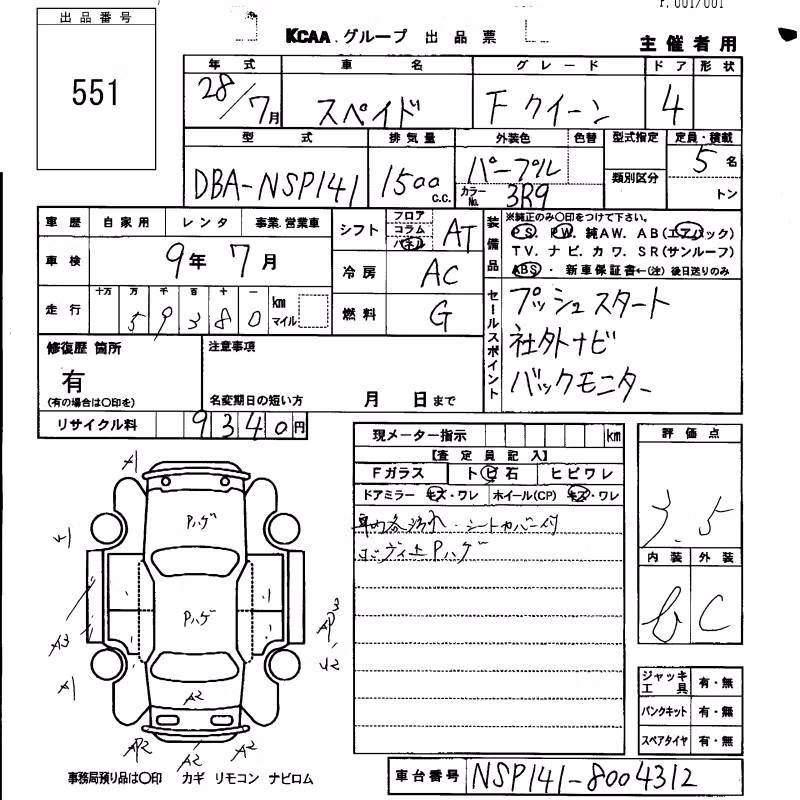 r.001/001
出品番号
551
KCAA.グループ 出品票
主催者用
年式 車名 グレード ドア 形状
28/7月 スペイド F クイーン 4
型式 排気量 外装色 色替 型式指定 定員・積載
DBA-NSP141 1500 c.c. パープル カラーNo. 3R9 類別区分 5名 トン
車歴 自家用 レンタ 事業.営業車
車検 9年 7月
走行 十万 万 千 百 十 一 km マイル
5 9 3 8 0
シフト フロア コラム パネル AT
冷房 AC
燃料 G
装備品
※純正のみ○印をつけて下さい。
PS. PW. 純AW. AB(エアバック)
TV. ナビ. カワ. SR(サンルーフ)
ABS・ 新車保証書←(注)後日送りのみ
セールスポイント
プッシュスタート
社外ナビ
バックモニター
修復歴 箇所
有
(有の場合は○印を)
注意事項
名変期日の短い方 月 日まで
リサイクル料 9340円
現メーター指示 km
【査定員記入】
Fガラス トビ石 ヒビワレ
ドアミラー キズ・ワレ ホイール(CP) キズ・ワレ
車内各汚れ・シートカバー付
ボディ上Pハゲ
評価点
3.5
内装 外装
b C
ジャッキ工具 有・無
パンクキット 有・無
スペアタイヤ 有・無
A1
Pハゲ
Pハゲ
A3
A1
AP3
U2
A2
AP2
A2
A2
事務局預り品は○印 カギ リモコン ナビロム
車台番号 NSP141-8004312